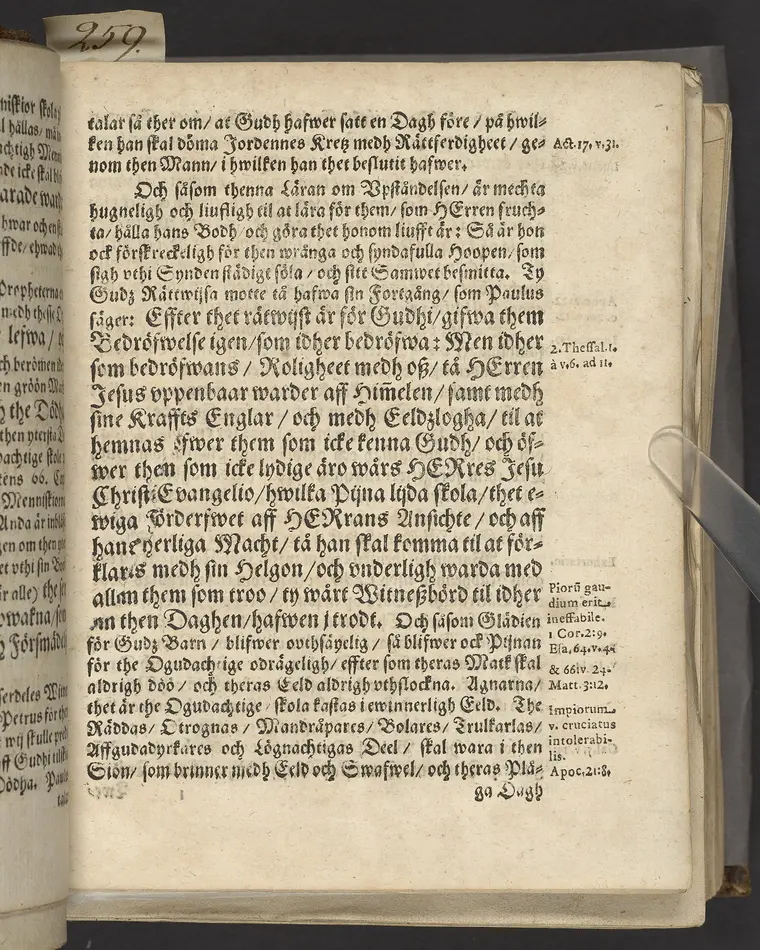 259.
talar så ther om/ at Gudh hafwer satt en Dagh före / på hwil-
ken han skal döma Jordennes Kretz medh Rättferdigheet / ge-
nom then Mann/ i hwilken han thet beslutit hafwer.
Act. 17. v. 31.
Och såsom thenna Läran om Vpståndelsen/ är mechta
hugneligh och liufligh til at lära för them/ som HErren fruch-
ta/ hålla hans Bodh/ och göra thet honom liufft är: Så är hon
ock förskreckeligh för then wrånga och syndafulla Hoopen/ som
sigh vthi Synden städigt söla / och sitt Samwet besmitta. Ty
Gudz Rättwijsa motte tå hafwa sin Fortgång/ som Paulus
säger: Effter thet rätwijst är för Gudhi/ gifwa them
Bedröfwelse igen/ som idher bedröfwa: Men idher
som bedröfwans / Roligheet medh oß/ tå HErren
Jesus vppenbaar warder aff Him̃elen/ samt medh
sine Kraffts Englar / och medh Eeldzlogha/ til at
hemnas öfwer them som icke kenna Gudh/ och öf-
wer then som icke lydige äro wårs HERres Jesu
Christi Evangelio/ hwilka Pijna lijda skola/ thet e-
wiga Förderfwet aff HERrans Ansichte / och aff
hans herliga Macht/ tå han skal komma til at för-
klaras medh sin Helgon/ och vnderligh warda med
allan them som troo/ ty wårt Witneßbörd til idher
om then Daghen/ hafwen j trodt. Och såsom Glädien
för Gudz Barn / blifwer outhsäyelig / så blifwer ock Pijnan
för the Ogudachtige odrägeligh/ effter som theras Matk skal
aldrigh döö / och theras Eeld aldrigh vthslockna. Agnarna/
thet är the Ogudachtige / skola kastas i ewinnerligh Eeld. The
Räddas/ Otrognas / Mandråpares/ Bolares/ Trulkarlas/
Affgudadyrkares och Lögnachtigas Deel / skal wara i then
Siön/ som brinner medh Eeld och Swafwel/ och theras Plå-
ga Dagh
2. Thessal. 1.
à v. 6. ad 11.
Piorũ gau-
dium erit
ineffabile.
1 Cor. 2: 9.
Esa. 64. v. 4
& 66: v. 24.
Matt. 3: 12.
Impiorum
v. cruciatus
intolerabi-
lis.
Apoc. 21: 8.